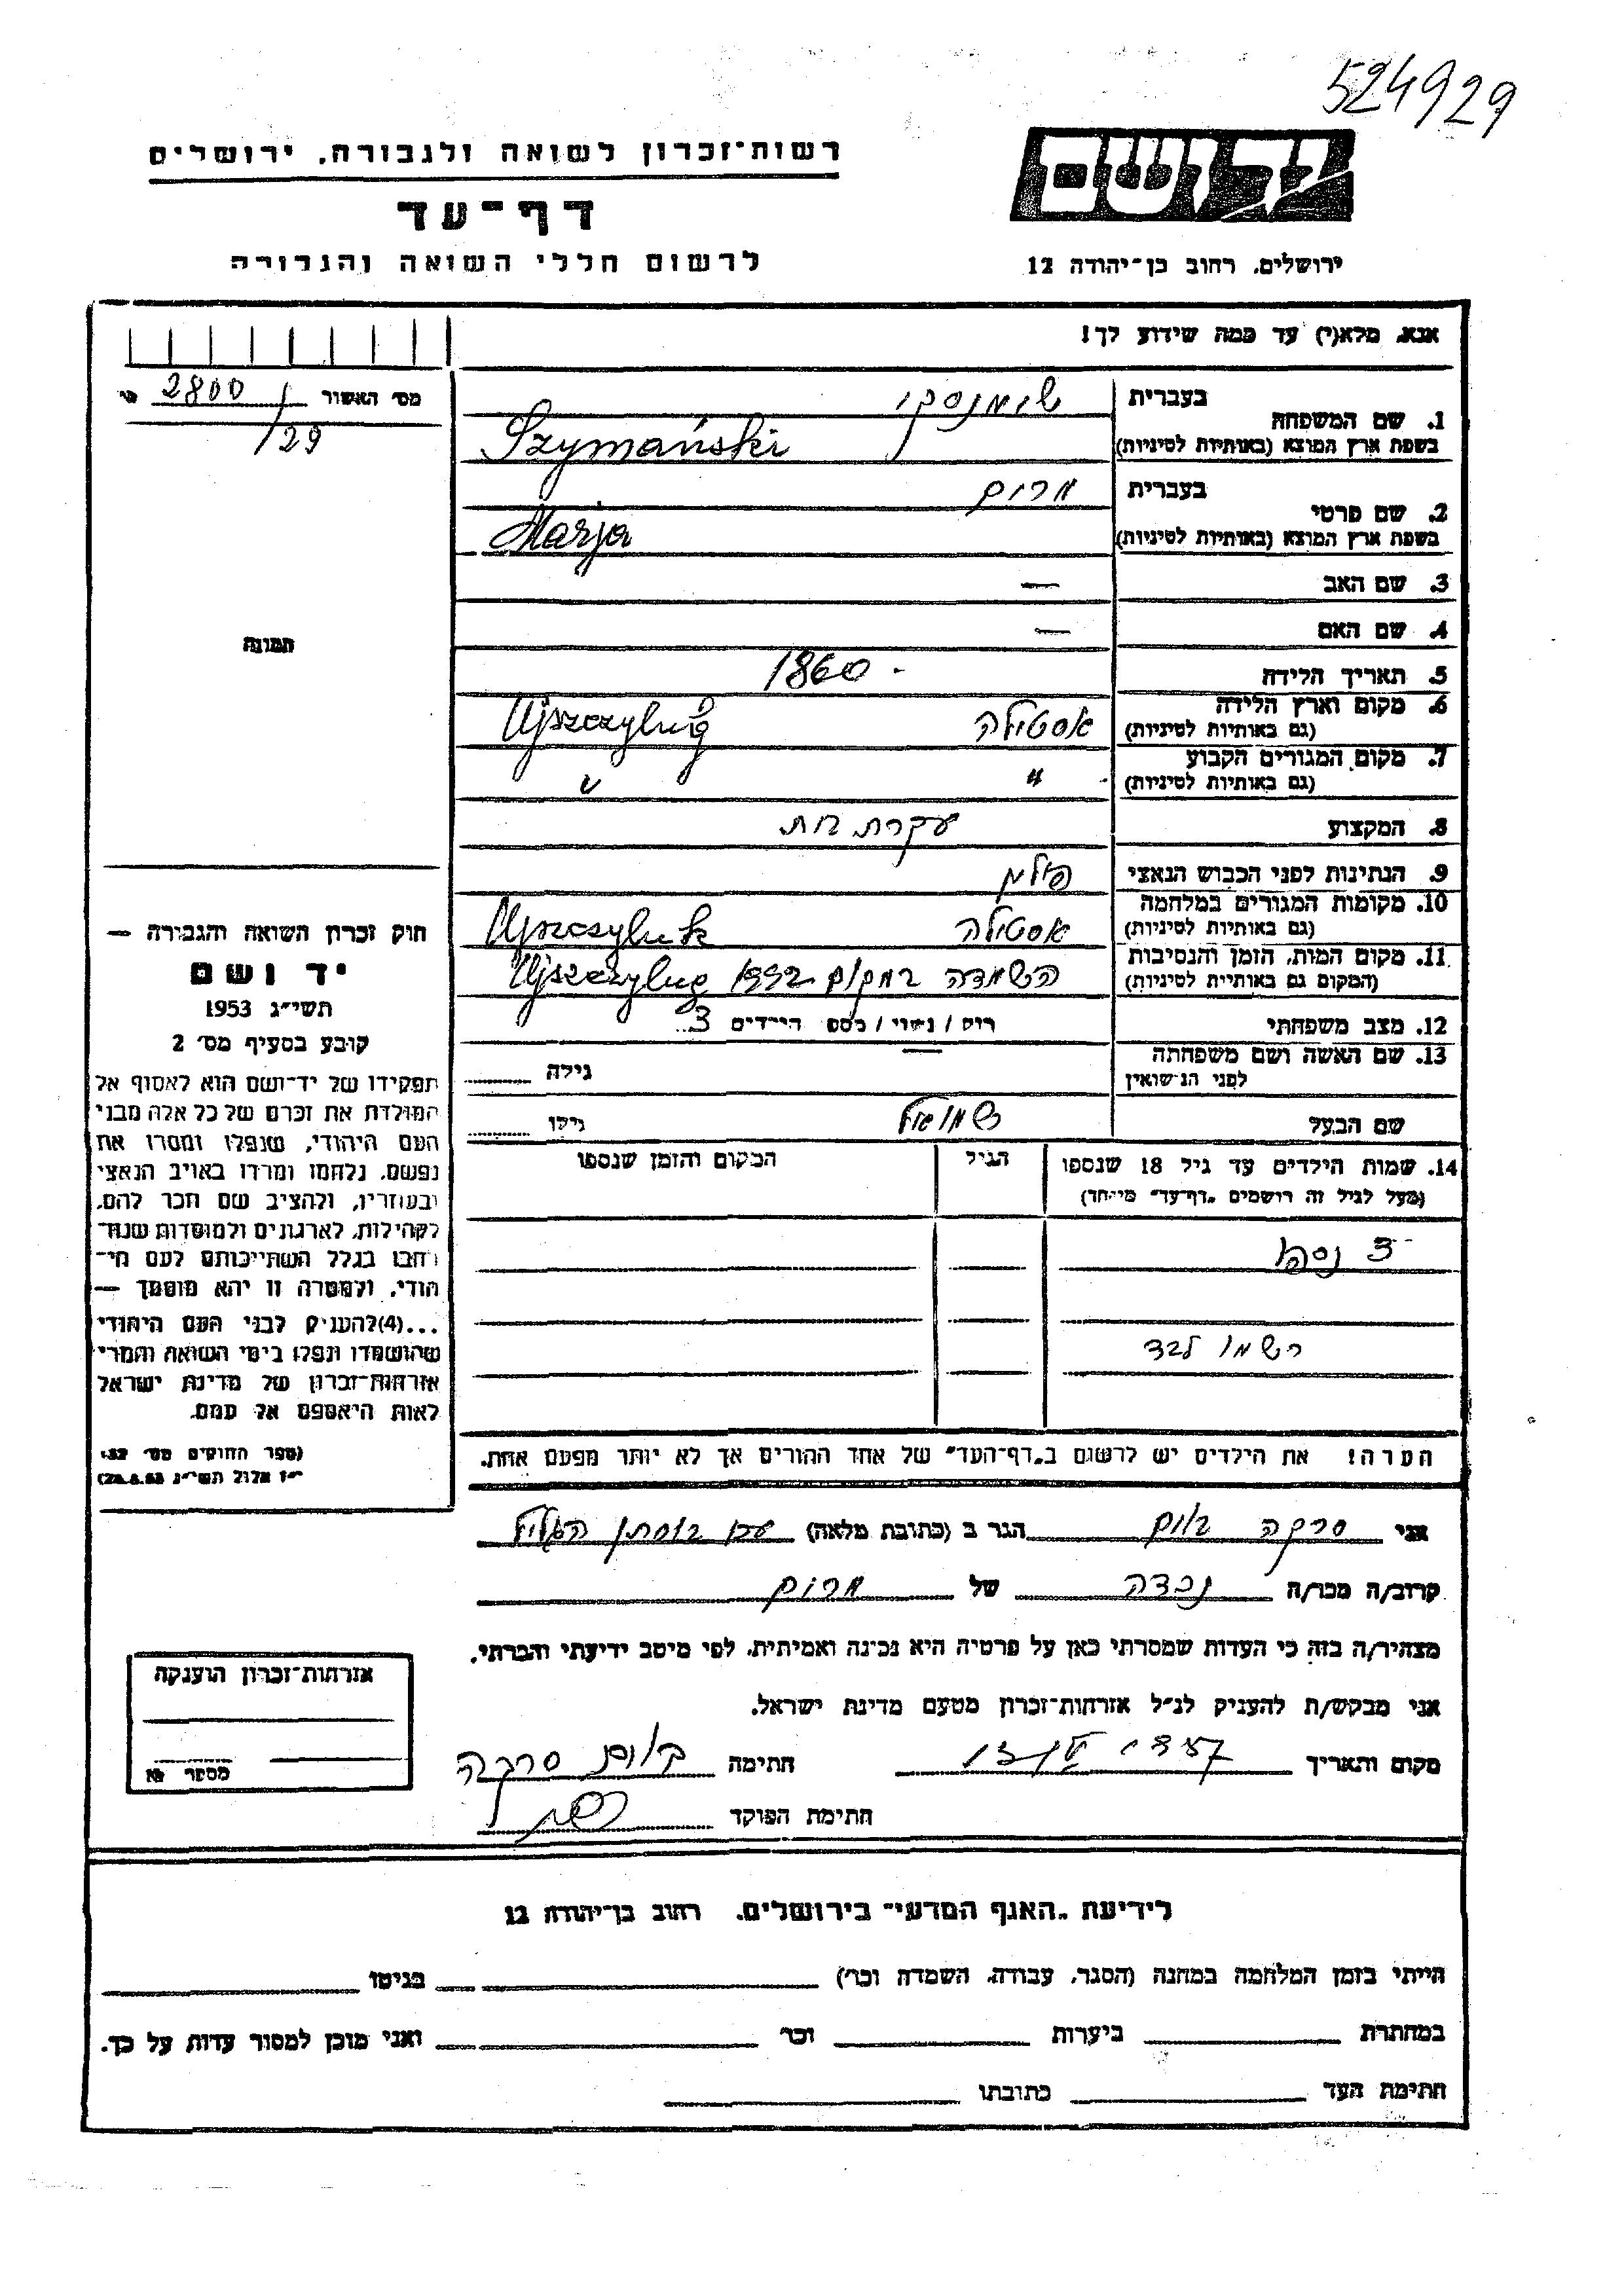 524929
רשות־זכרון לשואה ולגבורה, ירושלים
יד ושם
דף־עד
לרשום חללי השואה והגבורה
ירושלים, רחוב בן־יהודה 12
אנא, מלא(י) עד כמה שידוע לך!
מס׳ האשור 2800
/29
1. שם המשפחה
בעברית שימנסקי
בשפת ארץ המוצא (באותיות לטיניות) Szymański
2. שם פרטי
בעברית מרים
בשפת ארץ המוצא (באותיות לטיניות) Marja
3. שם האב —
4. שם האם —
תמונה
5. תאריך הלידה 1860
6. מקום וארץ הלידה
(גם באותיות לטיניות) אסטילה Ujszczylug
7. מקום המגורים הקבוע
(גם באותיות לטיניות) " "
8. המקצוע עקרת בית
9. הנתינות לפני הכבוש הנאצי פולין
10. מקומות המגורים במלחמה
(גם באותיות לטיניות) אסטילה Ujszczyluk
11. מקום המות, הזמן והנסיבות
(המקום גם באותיית לטיניות) השמדה במקום 1942 Ujszczylug
12. מצב משפחתי רוק / נשוי / מספ הילדים 3
13. שם האשה ושם משפחתה
לפני הנישואין — גילה
שם הבעל שמואל גילו
14. שמות הילדים עד גיל 18 שנספו
(מעל לגיל זה רושמים „דף־עד" מיוחד)
הגיל
המקום והזמן שנספו
3 נספו
רשמו לבד
הערה! את הילדים יש לרשום ב„דף־העד" של אחד ההורים אך לא יותר מפעם אחת.
חוק זכרון השואה והגבורה —
יד ושם
תשי״ג 1953
קובע בסעיף מס׳ 2
תפקידו של יד־ושם הוא לאסוף אל
המולדת את זכרם של כל אלה מבני
העם היהודי, שנפלו ומסרו את
נפשם, נלחמו ומרדו באויב הנאצי
ובעוזריו, ולהציב שם וזכר להם,
לקהילות, לארגונים ולמוסדות שנח־
רחבו בגלל השתייכותם לעם הי־
הודי, ולמטרה זו יהא מוסמך —
...(4)להעניק לבני העם היהודי
שהושמדו ונפלו בימי השואה והמרי
אזרחות־זכרון של מדינת ישראל
לאות היאספם אל עמם.
(ספר החוקים מס׳ 132,
י״ז אלול תשי״ג 28.8.53)
אני שרקה בוים הגר ב (כתובת מלאה) בוסתן הגליל
קרוב/ה מכר/ה נכדה של מרים
מצהיר/ה בזה כי העדות שמסרתי כאן על פרטיה היא נכונה ואמיתית, לפי מיטב ידיעתי והכרתי.
אני מבקש/ת להעניק לנ״ל אזרחות־זכרון מטעם מדינת ישראל.
מקום ותאריך
חתימה
חתימת הפוקד
אזרחות־זכרון הוענקה
מספר
לידיעת „האגף המדעי" בירושלים, רחוב בן־יהודה 12
הייתי בזמן המלחמה במחנה (הסגר, עבודה, השמדה וכו׳) בגיטו
במחתרת ביערות וכו׳ ואני מוכן למסור עדות על כך.
חתימת העד כתובתו